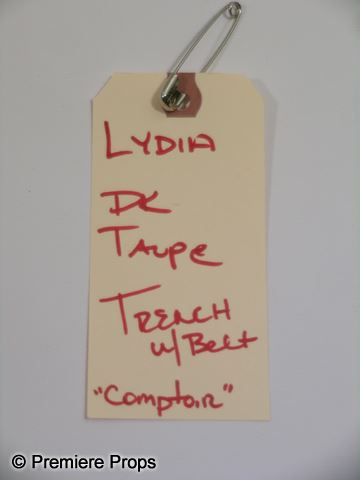 LYDIA
DK
TAUPE
TRENCH
w/Belt
"Comptoir"
© Premiere Props